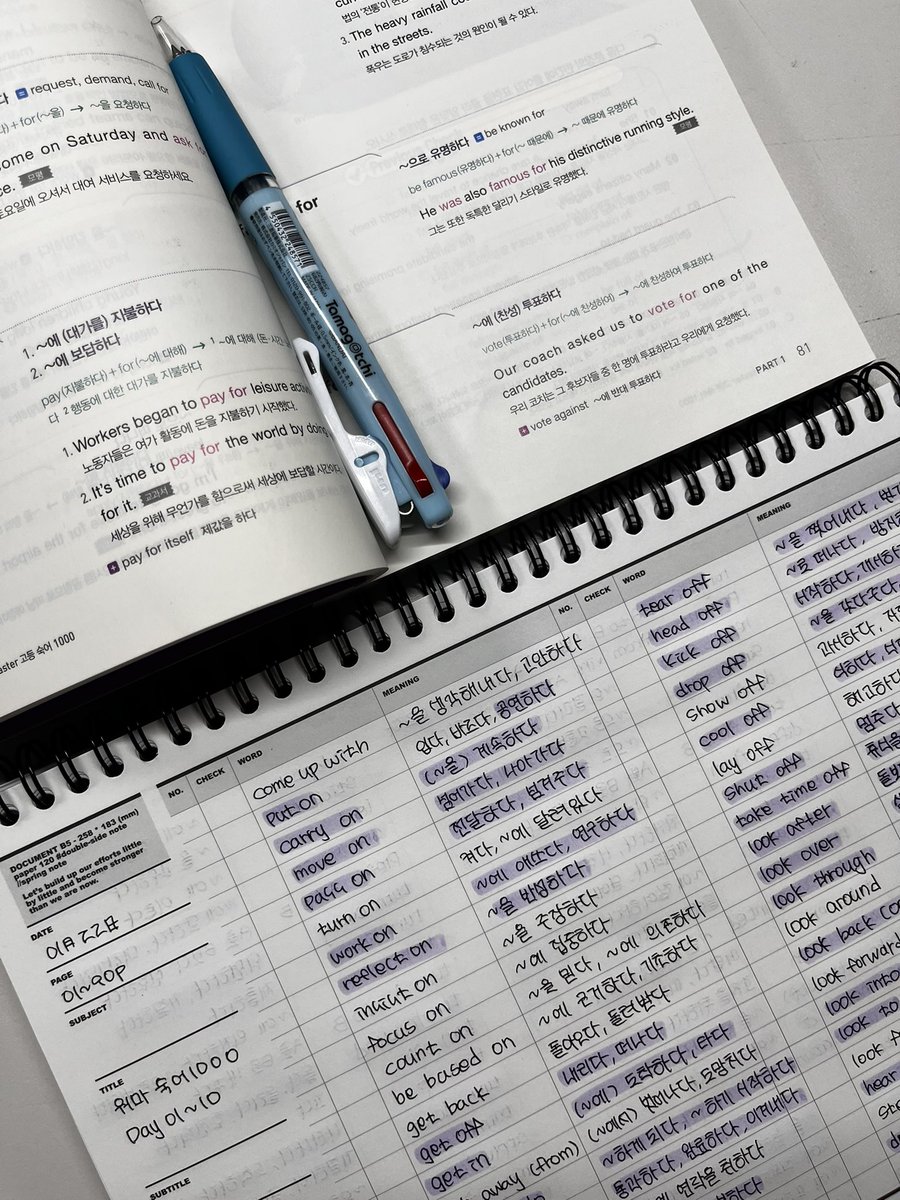 다 = request, demand, call for
+ for(~을) → ~을 요청하다
ome on Saturday and ask
ce. 모평
토요일에 오셔서 대여 서비스를 요청하세요.
1. ~에 (대가를) 지불하다
2. ~에 보답하다
pay(지불하다)+for(~에 대해) → 1 ~에 대해 (돈·시간
다 2 행동에 대한 대가를 지불하다
1. Workers began to pay for leisure
노동자들은 여가 활동에 돈을 지불하기 시작했다.
2. It's time to pay for the world by doing
for it. 교과서
세상을 위해 무언가를 함으로써 세상에 보답할 시간이다.
+ pay for itself 제값을 하다
고등 숙어 1000
법의 '전통'이
3. The heavy rainfall
in the streets.
폭우는 도로가 침수되는 것의 원인이 될 수 있다.
for
~으로 유명하다 = be known for
be famous(유명하다)+for(~ 때문에) → ~ 때문에 유명하다
He was also famous for his distinctive running style. 모평
그는 또한 독특한 달리기 스타일로 유명했다.
~에 (찬성) 투표하다
vote(투표하다)+for(~에 찬성하여) → ~에 찬성하여 투표하다
Our coach asked us to vote for one of the
candidates.
우리 코치는 그 후보자들 중 한 명에 투표하라고 우리에게 요청했다.
+ vote against ~에 반대 투표하다
PART 1 81
Tamag@tchi
DOCUMENT B5 - 258 * 183 (mm)
Paper 120 #double-side note
//spring note
Let's build up our efforts little
by little and become stronger
than we are now.
DATE
PAGE
01~20P
SUBJECT
TITLE
워마 숙어1000
Day 01~10
SUBTITLE
NO. CHECK WORD MEANING
come up with ~을 생각해내다, 고안하다
put on 입다, 바르다, 공연하다
carry on (~을) 계속하다
move on 넘어가다, 나아가다
pass on 전달하다, 넘겨주다
turn on 켜다, ~에 달려있다
work on ~에 애쓰다, 연구하다
reflect on ~을 반성하다
insist on ~을 주장하다
focus on ~에 집중하다
count on ~을 믿다, ~에 의존하다
be based on ~에 근거하다, 기초하다
get back 돌아오다, 돌려받다
get off 내리다, 떠나다
get in (~에) 도착하다, 타다
away (from) (~에서) 벗어나다, 도망치다
~하게 되다, ~하기 시작하다
통과하다, 완료하다, 이겨내다
연락을 취하다
NO. CHECK WORD MEANING
tear off ~을 찢어내다,
head off ~로 떠나다,
kick off 시작하다,
drop off
show off 과시하다,
cool off
lay off 해고하다
shut off
take time off
look after
look over
look through
look around
look back
look forward
look into
look to
look
hear